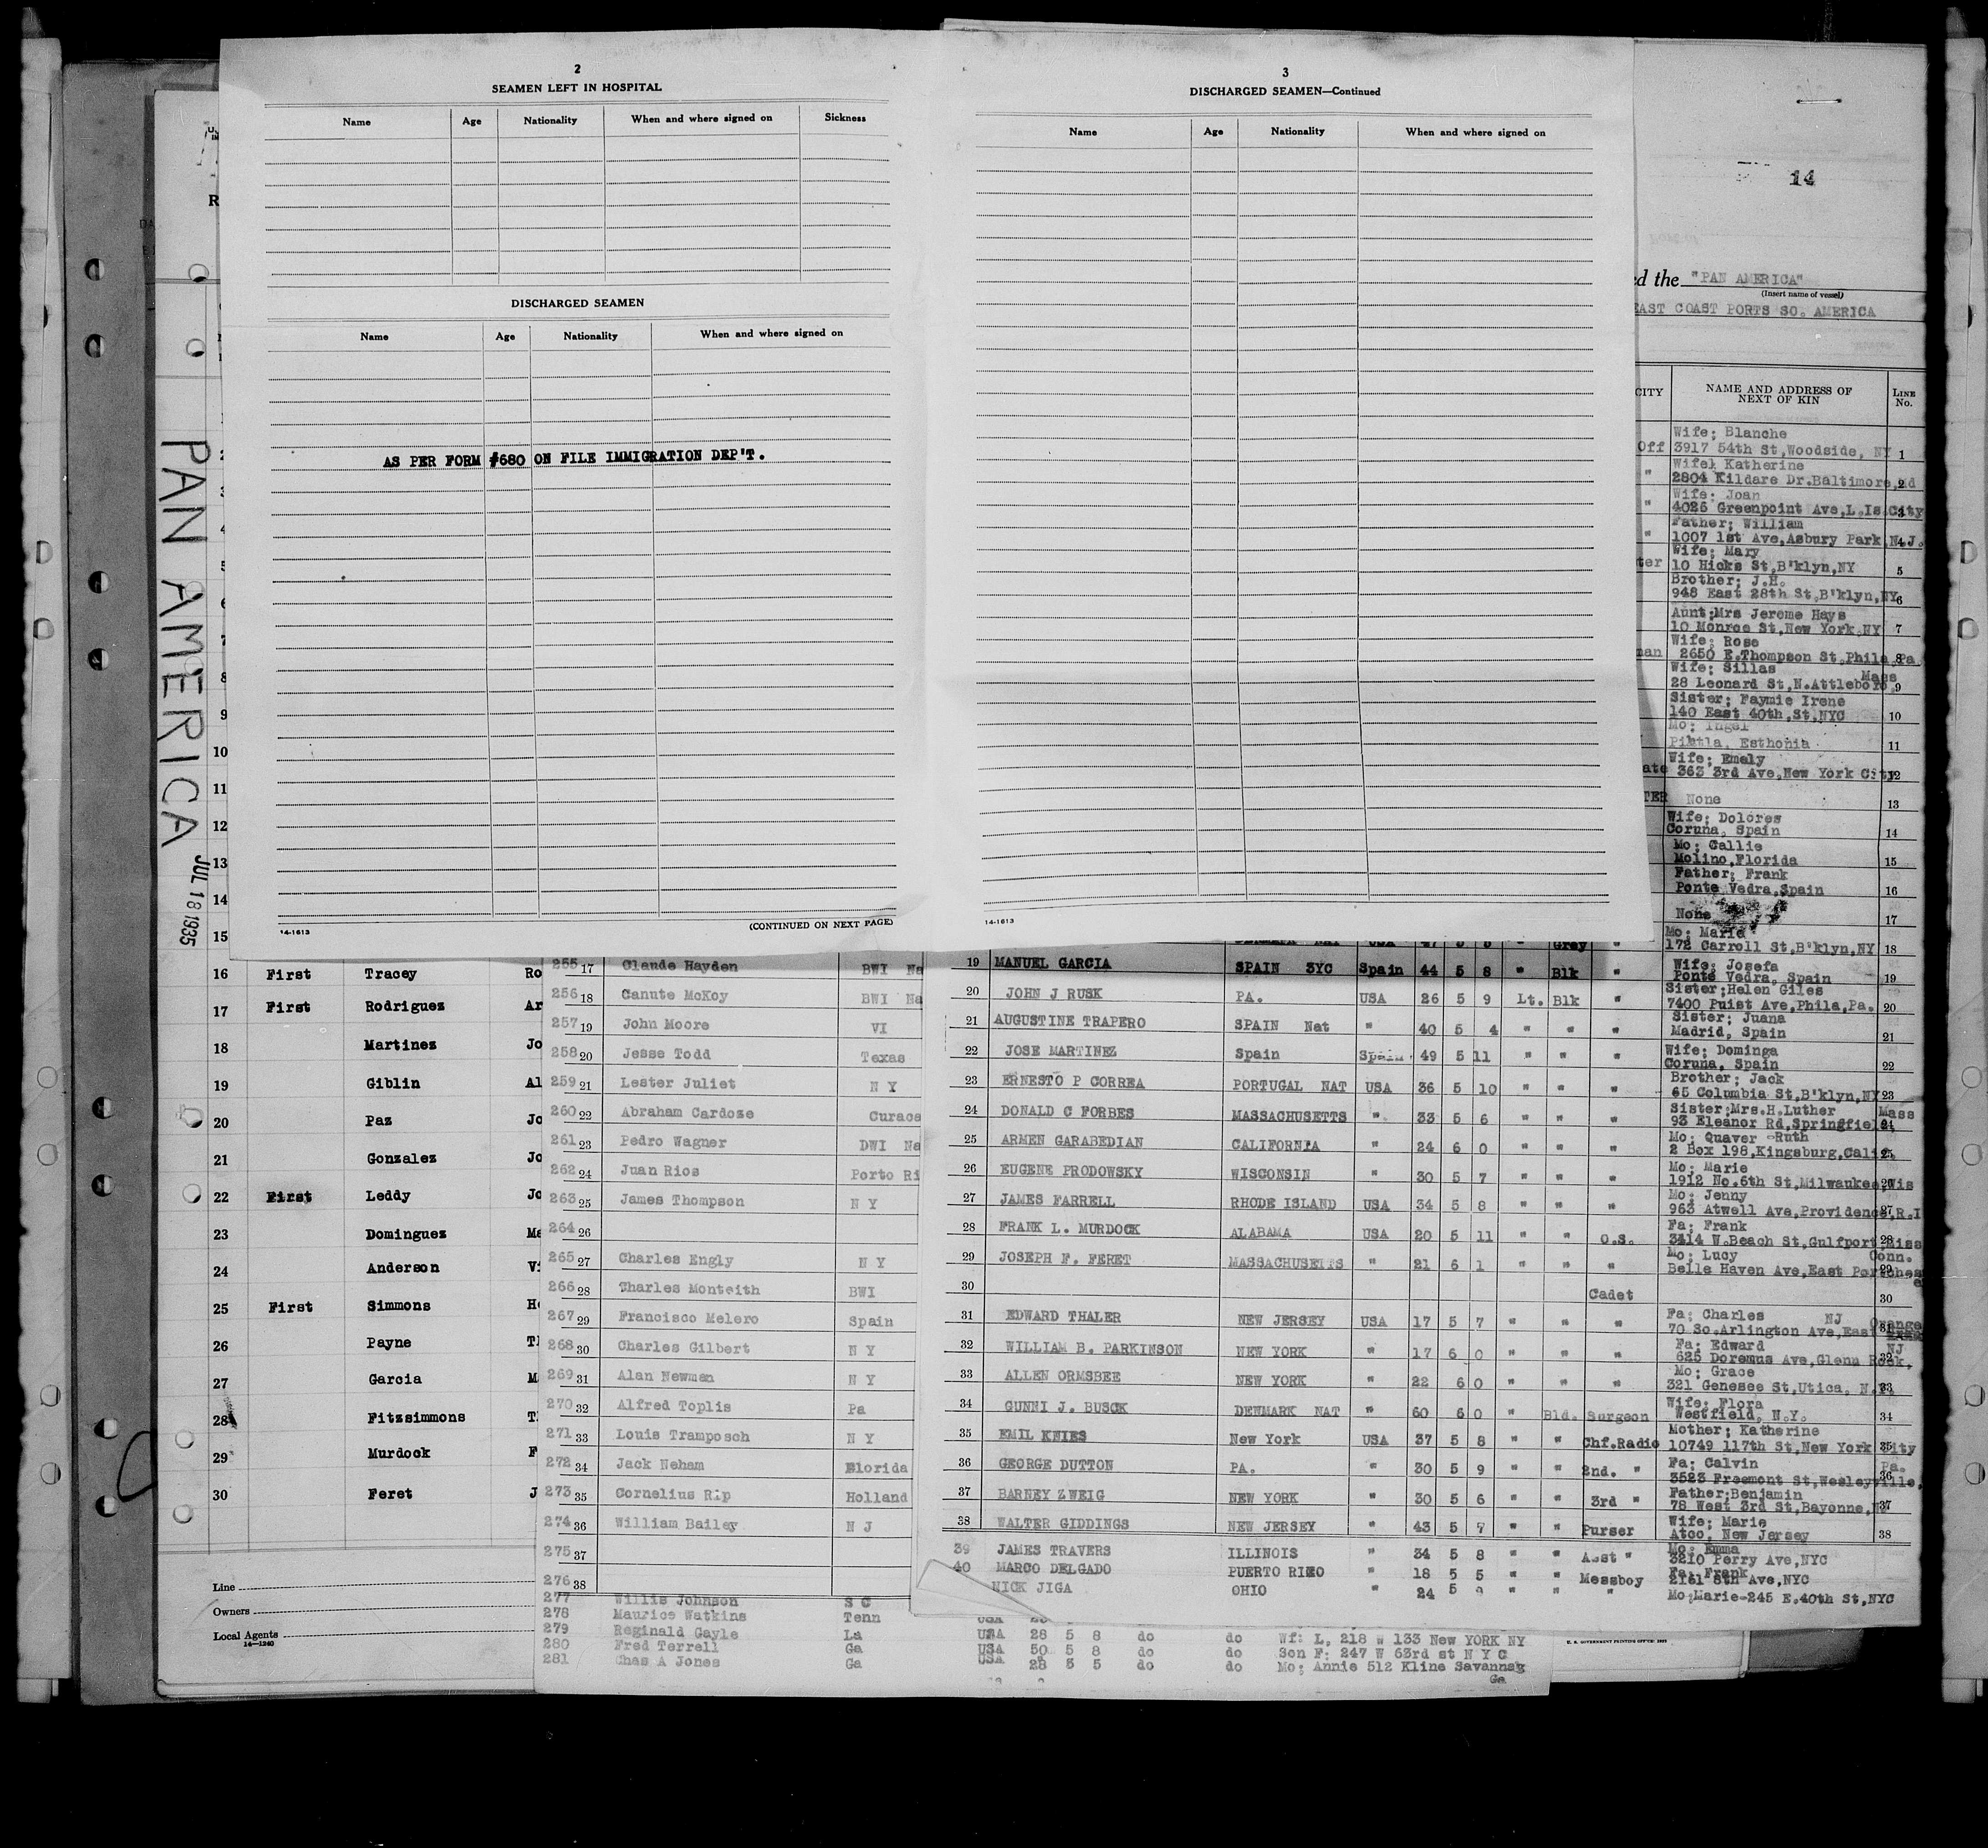 2
SEAMEN LEFT IN HOSPITAL
Name Age Nationality When and where signed on Sickness
DISCHARGED SEAMEN
Name Age Nationality When and where signed on
AS PER FORM #680 ON FILE IMMIGRATION DEP'T.
14-1613 (CONTINUED ON NEXT PAGE)
3
DISCHARGED SEAMEN—Continued
Name Age Nationality When and where signed on
14-1613
14
ed the "PAN AMERICA"
(Insert name of vessel)
EAST COAST PORTS SO. AMERICA
CITY NAME AND ADDRESS OF NEXT OF KIN LINE No.
Wife; Blanche
Off 3917 54th St,Woodside, NY 1
Wife; Katherine
" 2804 Kildare Dr.Baltimore,Md 2
Wife; Joan
" 4026 Greenpoint Ave,L.Is.City 3
Father; William
" 1007 1st Ave,Asbury Park,N.J. 4
Wife; Mary
ter 10 Hicks St,B'klyn,NY 5
Brother; J.H.
948 East 28th St,B'klyn,NY 6
Aunt;Mrs Jerome Hays
10 Monroe St,New York,NY 7
Wife; Rose
man 2650 E.Thompson St,Phila,Pa 8
Wife; Sillas
28 Leonard St,N.Attleboro, Mass 9
Sister; Faymie Irene
140 East 40th,St,NYC 10
Mo; Ingel
Esthonia 11
Wife; Emaly
ate 363 3rd Ave,New York City 12
TER None 13
Wife; Dolores
Coruna, Spain 14
Mo; Callie
Molino,Florida 15
Father; Frank
Ponte Vedra,Spain 16
None 17
Mo; Marie
172 Carroll St,B'klyn,NY 18
PAN AMERICA
JUL 18 1935
8
9
10
11
12
13
14
15
16 First Tracey Ro
17 First Rodriguez Ar
18 Martinez Jo
19 Giblin Al
20 Paz Jo
21 Gonzalez Jo
22 First Leddy Jo
23 Dominguez Ma
24 Anderson Vi
25 First Simmons He
26 Payne Th
27 Garcia M
28 Fitzsimmons T
29 Murdock F
30 Feret J
Line
Owners
Local Agents
14-1240
255 17 Claude Hayden BWI Na
256 18 Canute McKoy BWI Na
257 19 John Moore VI
258 20 Jesse Todd Texas
259 21 Lester Juliet N Y
260 22 Abraham Cardoze Curaca
261 23 Pedro Wagner DWI Na
262 24 Juan Rios Porto Ri
263 25 James Thompson N Y
264 26
265 27 Charles Engly N Y
266 28 Tharles Monteith BWI
267 29 Francisco Melero Spain
268 30 Charles Gilbert N Y
269 31 Alan Newman N Y
270 32 Alfred Toplis Pa
271 33 Louis Tramposch N Y
272 34 Jack Neham Florida
273 35 Cornelius Rip Holland
274 36 William Bailey N J
275 37
276 38
277 Willis Johnson S C
278 Maurice Watkins Tenn
279 Reginald Gayle La USA 28 5 8 do do Wf: L, 218 W 133 New YORK NY
280 Fred Terrell Ga USA 50 5 8 do do Son F: 247 W 63rd st N Y C
281 Chas A Jones Ga USA 28 5 5 do do Mo; Annie 512 Kline Savannag
Ga
19 MANUEL GARCIA SPAIN 3YC Spain 44 5 8 " Blk " Wife; Josefa
Ponte Vedra, Spain 19
20 JOHN J RUSK PA. USA 26 5 9 Lt. Blk " Sister;Helen Giles
7400 Puist Ave,Phila,Pa. 20
21 AUGUSTINE TRAPERO SPAIN Nat " 40 5 4 " " " Sister; Juana
Madrid, Spain 21
22 JOSE MARTINEZ Spain Spain 49 5 11 " " " Wife; Dominga
Coruna, Spain 22
23 ERNESTO P CORREA PORTUGAL NAT USA 36 5 10 " " " Brother; Jack
65 Columbia St,B'klyn,NY 23
24 DONALD C FORBES MASSACHUSETTS " 33 5 6 " " " Sister;Mrs.H.Luther Mass
93 Eleanor Rd,Springfield, 24
25 ARMEN GARABEDIAN CALIFORNIA " 24 6 0 " " " Mo; Quaver -Ruth
2 Box 198,Kingsburg,Calif. 25
26 EUGENE PRODOWSKY WISCONSIN " 30 5 7 " " " Mo; Marie
1912 No.6th St,Milwaukee,Wis 26
27 JAMES FARRELL RHODE ISLAND USA 34 5 8 " " " Mo; Jenny
963 Atwell Ave,Providence,R.I 27
28 FRANK L. MURDOCK ALABAMA USA 20 5 11 " " O.S. Fa; Frank
3414 W.Beach St,Gulfport,Miss 28
29 JOSEPH F. FERET MASSACHUSETTS " 21 6 1 " " " Mo; Lucy Conn.
Belle Haven Ave,East 29
30 Cadet 30
31 EDWARD THALER NEW JERSEY USA 17 5 7 " " " Fa; Charles NJ Orange
70 So.Arlington Ave,East 31
32 WILLIAM B. PARKINSON NEW YORK " 17 6 0 " " " Fa; Edward NJ
625 Doremus Ave,Glenn Rock, 32
33 ALLEN ORMSBEE NEW YORK " 22 6 0 " " " Mo; Grace
321 Genesee St,Utica, N.Y. 33
34 GUNNI J. BUSCK DENMARK NAT " 60 6 0 " Bld. Surgeon Wife; Flora
Westfield, N.Y. 34
35 EMIL KNIES New York USA 37 5 8 " " Chf.Radio Mother; Katherine
10749 117th St,New York City 35
36 GEORGE DUTTON PA. " 30 5 9 " " 2nd. " Fa; Calvin Pa.
3523 Freemont St,Wesleyville, 36
37 BARNEY ZWEIG NEW YORK " 30 5 6 " " 3rd " Father;Benjamin
78 West 3rd St,Bayonne,NJ 37
38 WALTER GIDDINGS NEW JERSEY " 43 5 7 " " Purser Wife; Marie
Atco, New Jersey 38
39 JAMES TRAVERS ILLINOIS " 34 5 8 " " Asst " Mo; Emma
3210 Perry Ave,NYC
40 MARCO DELGADO PUERTO RICO " 18 5 5 " " Messboy Fa; Frank
2161 8th Ave,NYC
NICK JIGA OHIO " 24 5 9 " " " Mo;Marie-245 E.40th St,NYC
U. S. GOVERNMENT PRINTING OFFICE